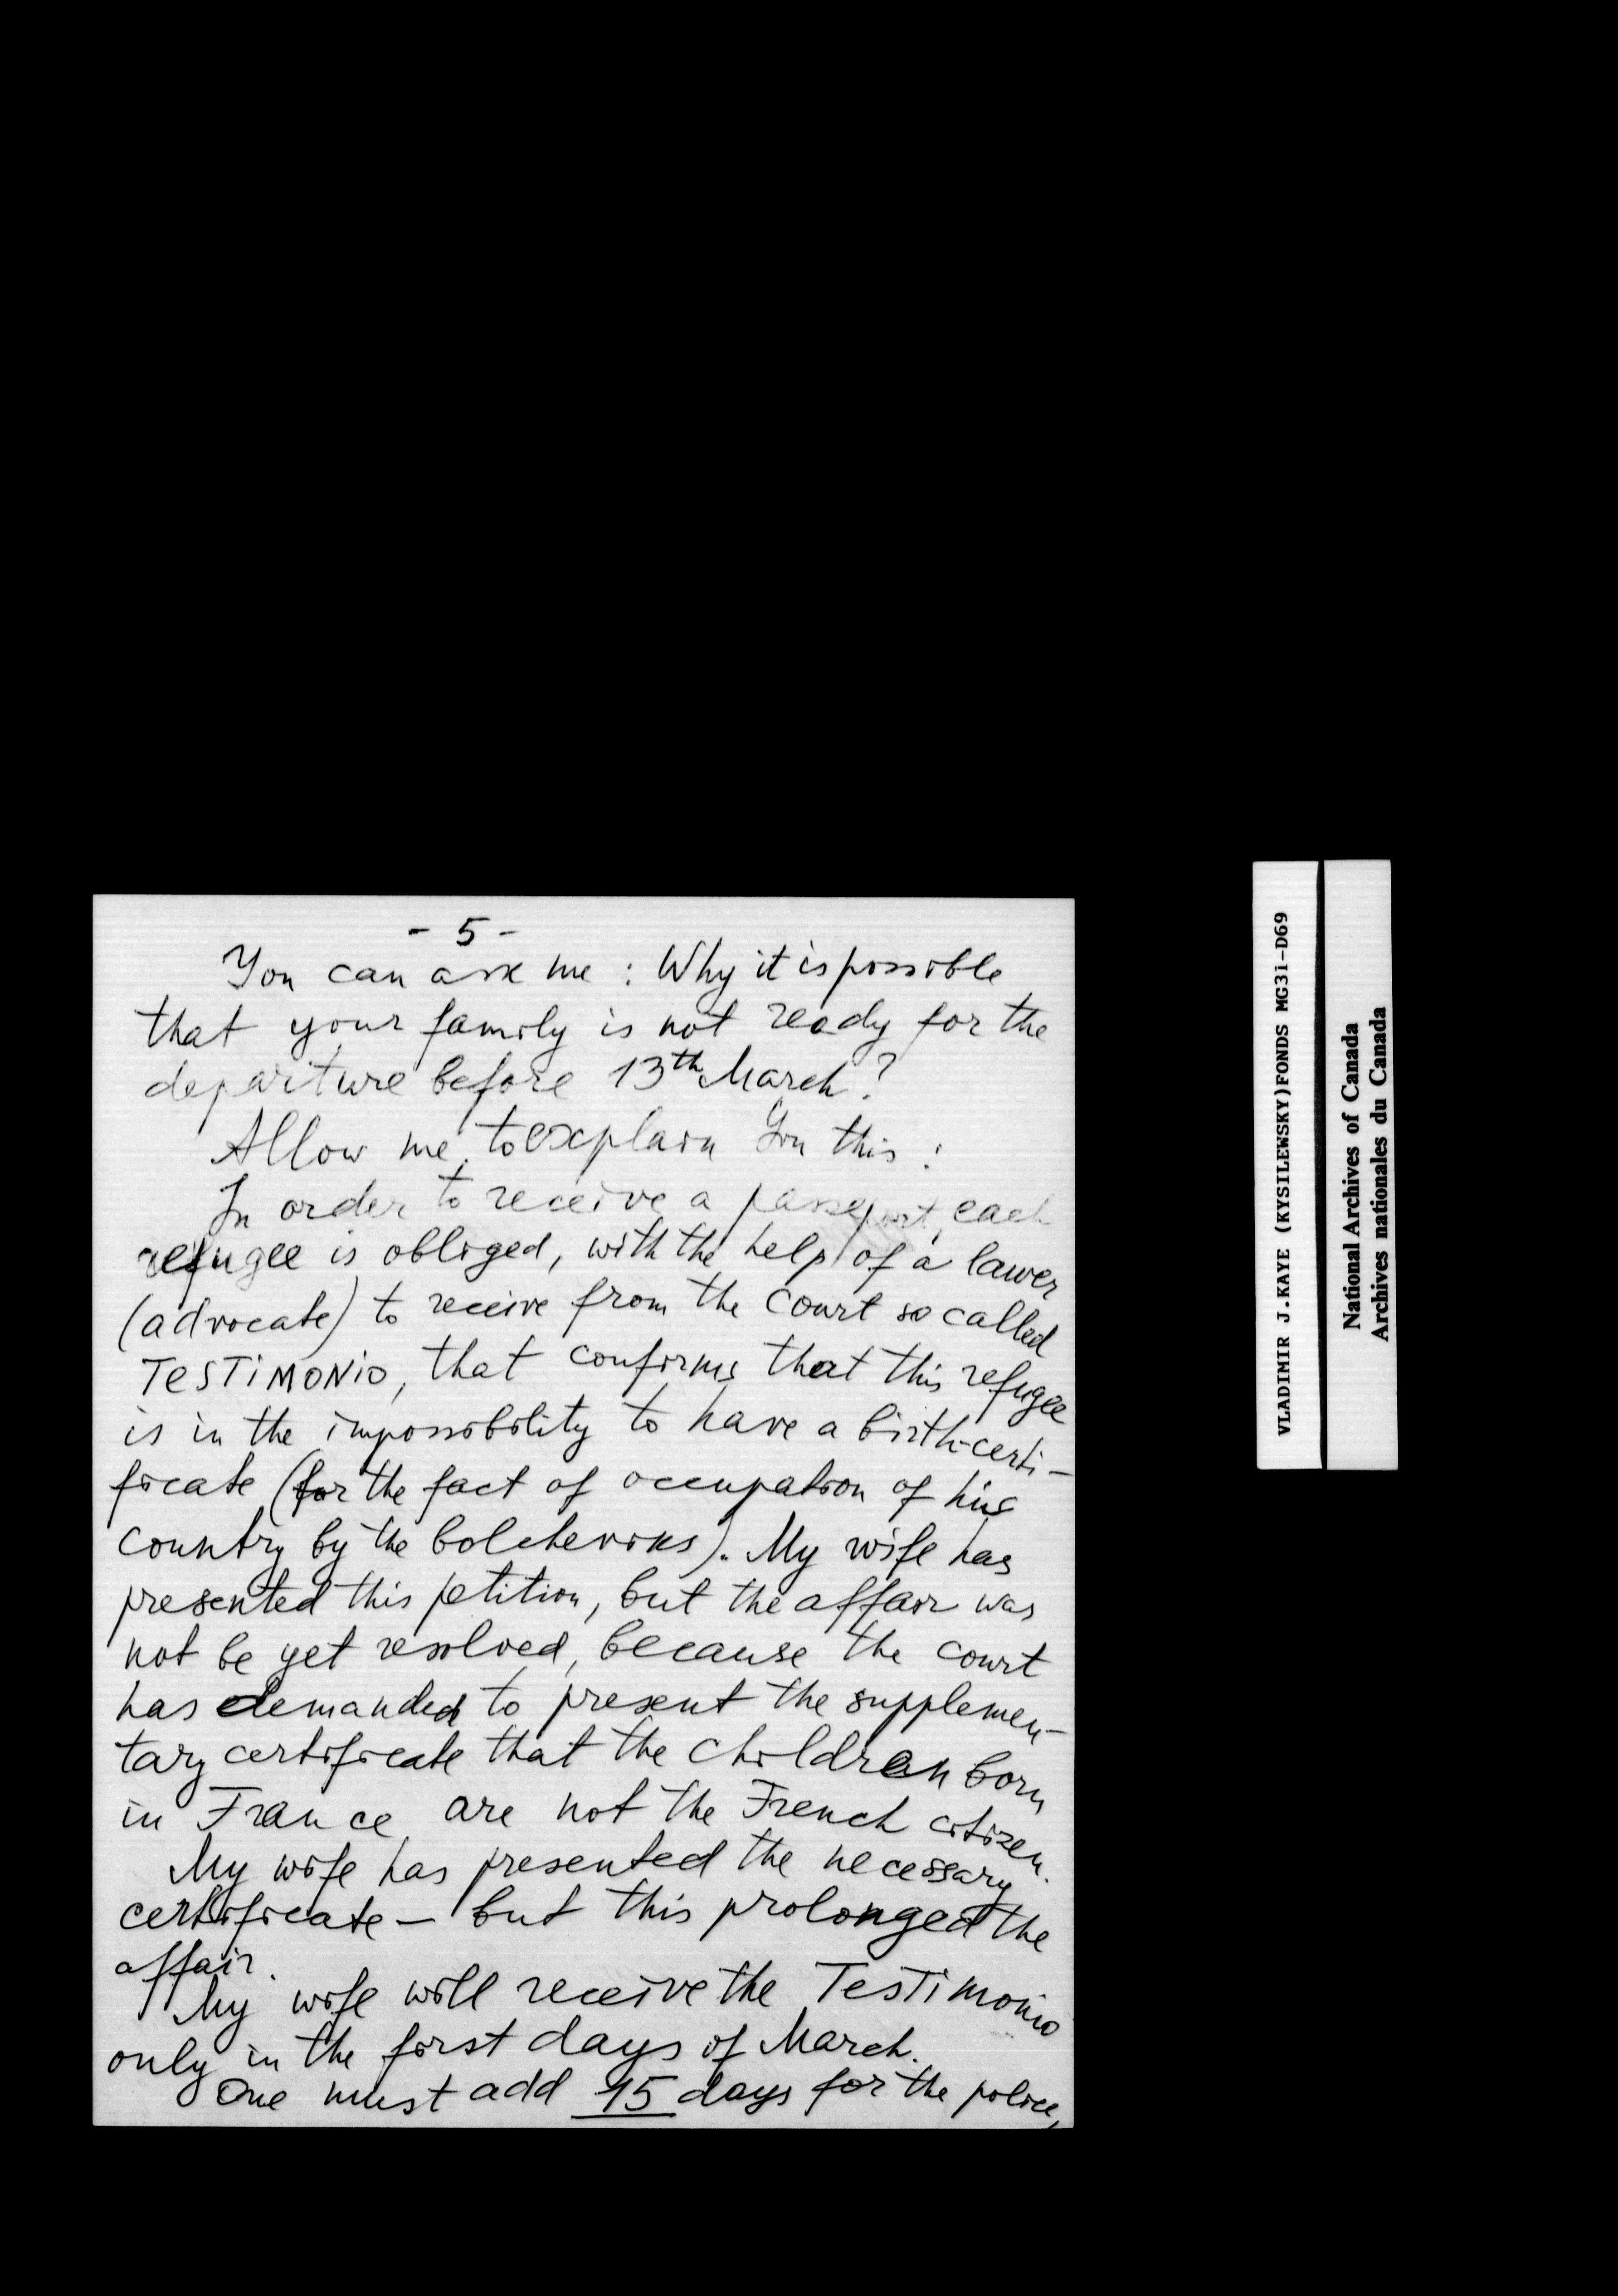 - 5 -
You can ask me : Why it is possible
that your family is not ready for the
departure before 13th March?
Allow me to explain You this :
In order to receive a passeport, each
refugee is obliged, with the help of a lawer
(advocate) to receive from the court so called
TESTIMONIO, that confirms that this refugee
is in the impossibility to have a birth-certi-
ficate (for the fact of occupation of his
country by the bolcheviks). My wife has
presented this petition, but the affair was
not be yet resolved, because the court
has demanded to present the supplemen-
tary certificate that the children born
in France are not the French citizen.
My wife has presented the necessary
certificate - but this prolonged the
affair.
My wife will receive the Testimonio
only in the first days of March.
One must add 15 days for the police,
VLADIMIR J.KAYE (KYSILEWSKY)FONDS MG31-D69
National Archives of Canada
Archives nationales du Canada